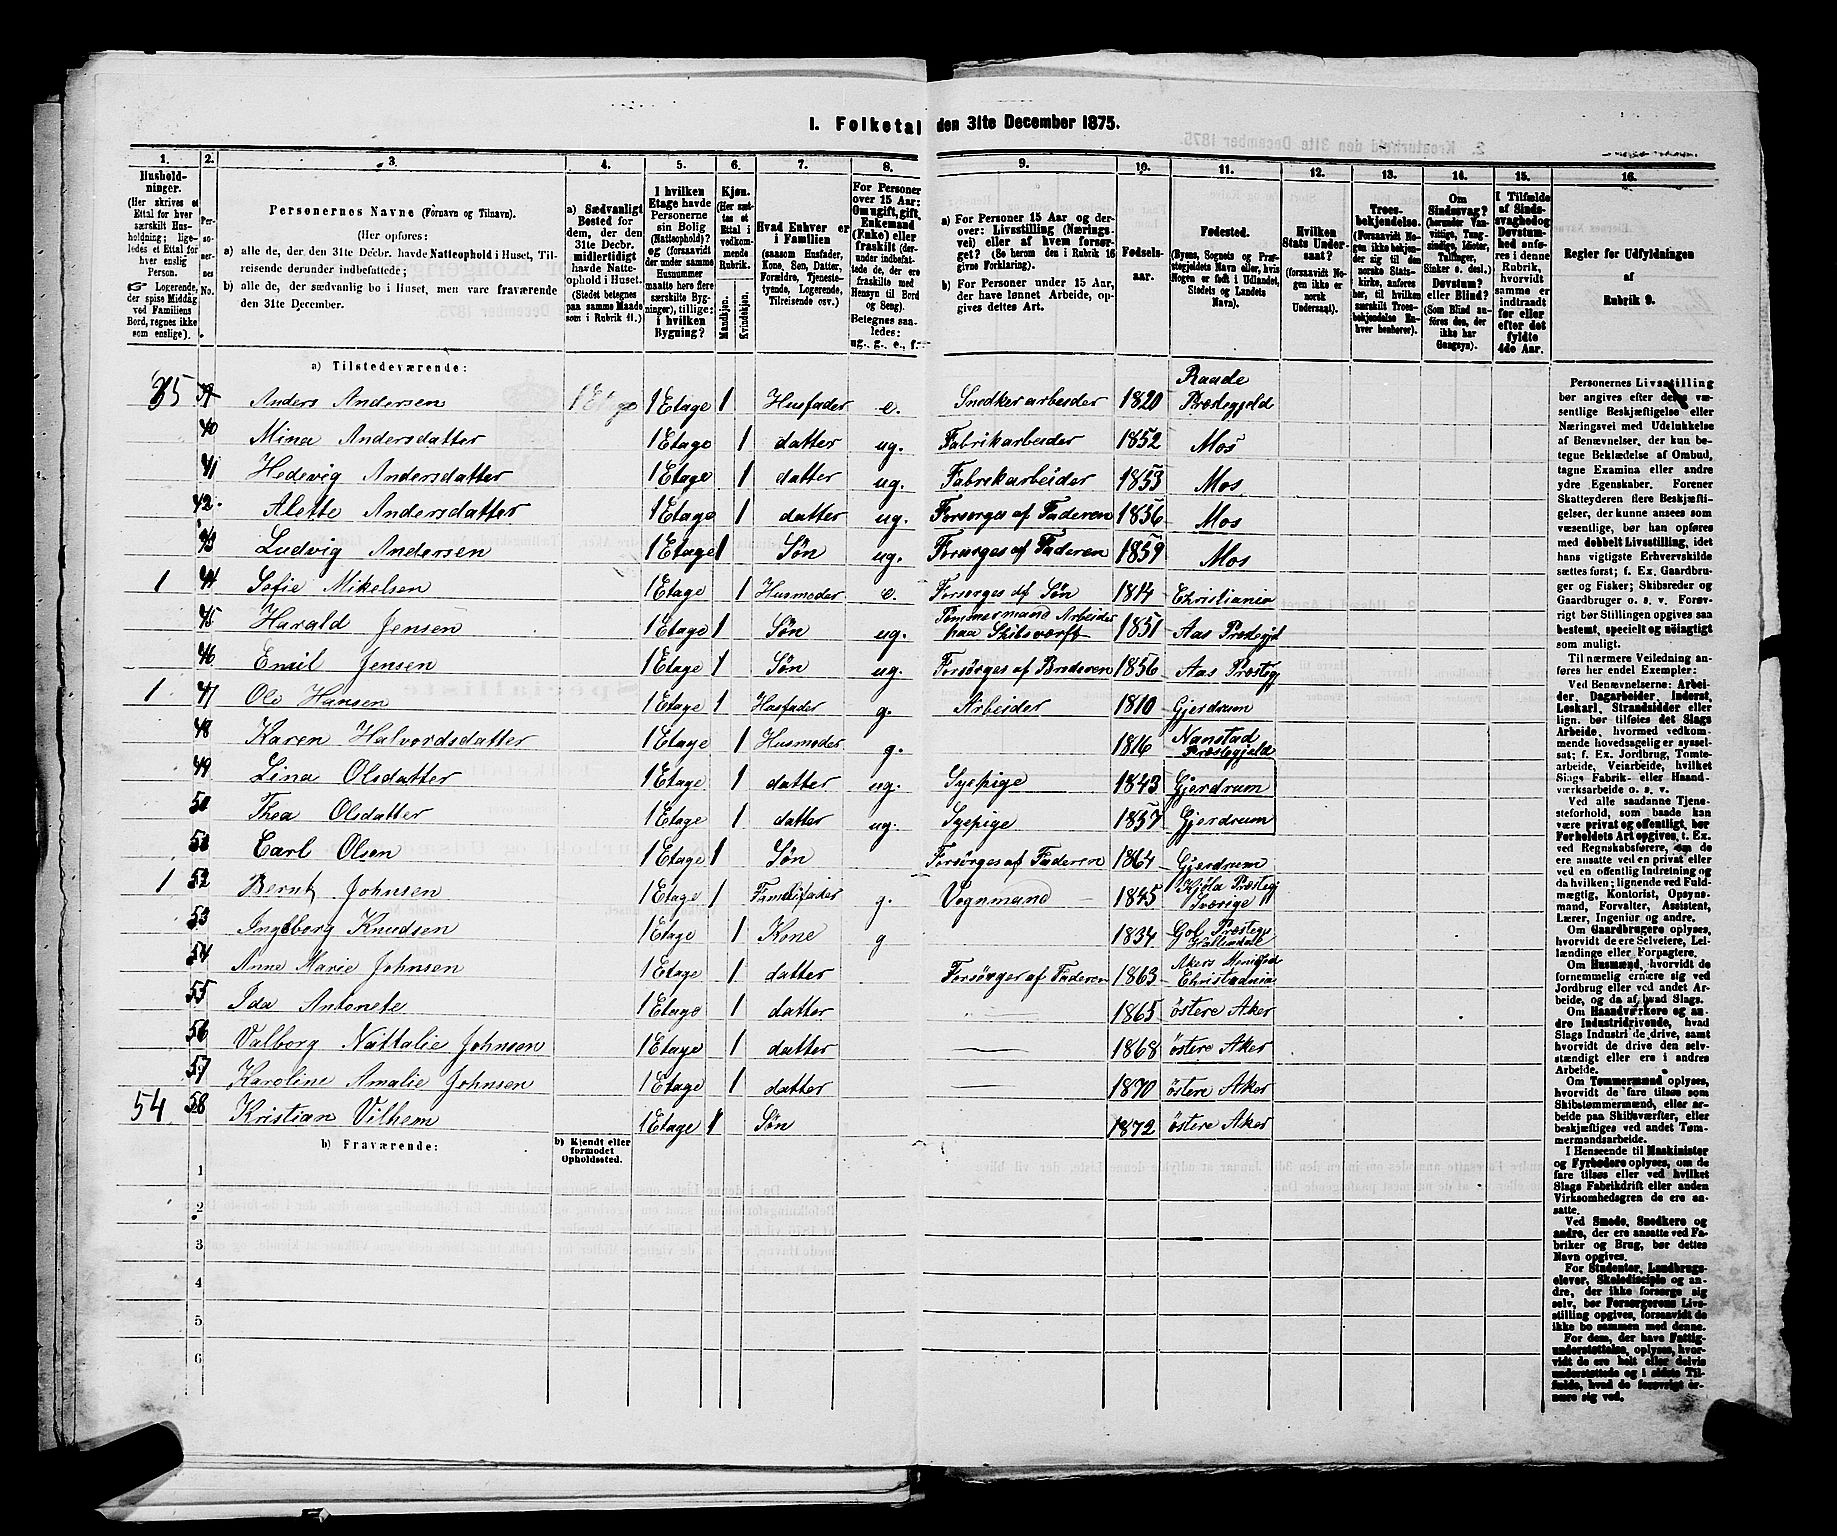 1. Folketal den 31te December 1875.
1. 2. 3. 4. 5. 6. 7. 8. 9. 10. 11. 12. 13. 14. 15. 16.
Husholdninger. (Her skrives et Ettal for hver særskilt Husholdning; ligeledes et Ettal for hver enslig Person. Logerende, der spise Middag ved Familiens Bord, regnes ikke som enslige).
Personernes No.
Personernes Navne (Fornavn og Tilnavn).
(Her opføres:
a) alle de, der den 31te Decbr. havde Natteophold i Huset, Tilreisende derunder indbefattede;
b) alle de, der sædvanlig bo i Huset, men vare fraværende den 31te December.
a) Sædvanligt Bosted for dem, der den 31te Decbr. midlertidigt havde Natteophold i Huset. (Stedet betegnes paa samme Maade som i Rubrik 11.)
I hvilken Etage havde Personerne sin Bolig (Natteophold)? og (forsaavidt der under samme Husnummer maatte here flere særskilte Bygninger), tillige: i hvilken Bygning?
Kjøn. (Her sættes et Ettal i vedkommende Rubrik. Mandkjøn. Kvindekjøn.
Hvad Enhver er i Familien (saasom Husfader, Kone, Søn, Datter, Forældre, Tjenestetyende, Logerende, Tilreisende osv.)
For Personer over 15 Aar: Om ugift, gift, Enkemand (Enke) eller fraskilt (derunder indbefattede de, der ere fraskilte med Hensyn til Bord og Seng). Betegnes saaledes: ug., g., e., f.
a) For Personer 15 Aar og derover: Livsstilling (Næringsvei) eller af hvem forsørget? (Se herom den i Rubrik 16 givne Forklaring).
b) For Personer under 15 Aar, der have lønnet Arbeide, opgives dettes Art.
Fødselsaar.
Fødested. (Byens, Sognets og Præstegjeldets Navn eller, hvis Nogen er født i Udlandet, Stedets og Landets Navn).
Hvilken Stats Undersaat? (forsaavidt Nogen ikke er norsk Undersaat).
Troesbekjendelse. (Forsaavidt Nogen ikke bekjender sig til den norske Statskirke, anføres her, til hvilken særskilte Troesbekjendelse Enhver henhører).
Om Sindssvag? (herunder Vanvittige, Tungsindige, Idioter, Tullinger, Sinker o. desl.) Døvstum? eller Blind? (Som Blind anføres den, der ikke har Gangsyn).
I Tilfælde af Sindssvaghed og Døvstumhed anføres i denne Rubrik, hvorvidt samme er indtraadt før eller efter det fyldte 4de Aar.
Regler for Udfyldningen af Rubrik 9.
a) Tilstedeværende:
35 39 Anders Andersen 1 Etage 1 Etage 1 Husfader e. Snedker arbeider 1820 Raade Præstegjeld
40 Mina Andersdatter 1 Etage 1 datter ug. Fabrikarbeider 1852 Mos
41 Hedevig Andersdatter 1 Etage 1 datter ug. Fabrikarbeider 1853 Mos
42. Alette Andersdatter 1 Etage 1 datter ug. Forsørges af Faderen 1856 Mos
43 Ludvig Andersen 1 Etage 1 Søn ug. Forsørges af Faderen 1859 Mos
1 44 Sofie Mikelsen 1 Etage 1 Husmoder e. Forsørges af Søn 1814 Christiania
45 Harald Jensen 1 Etage 1 Søn ug. Tømmermand Arbeider paa Skibsværft 1851 Aas Prestegjt
46 Emil Jensen 1 Etage 1 Søn ug. Forsørges af Broderen 1856 Aas Præsteg
1 47 Ole Hansen 1 Etage 1 Husfader g. Arbeider 1810 Gjerdrum
48 Karen Halvordsdatter 1 Etage 1 Husmoder g. 1816 Nanstad Præstegjeld
49 Lina Olsdatter 1 Etage 1 datter ug. Syepige 1843 Gjerdrum
50 Thea Olsdatter 1 Etage 1 datter ug. Syepige 1857 Gjerdrum
51 Carl Olsen 1 Etage 1 Søn Forsørges af Faderen 1864 Gjerdrum
1 52 Bernt Johnsen 1 Etage 1 Familifader g. Vognmand 1845 Kjøla Præstegj Sverige
53 Ingeborg Knudsen 1 Etage 1 Kone g 1834 Gol Præstegj
54 Anne Marie Johnsen 1 Etage 1 datter Forsørger af Faderen 1863 Akers Christiania
55 Ida Antonete 1 Etage 1 datter — 1865 østere Aker
56 Valborg Nattalie Johnsen 1 Etage 1 datter — 1868 østere Aker
57 Karoline Amalie Johnsen 1 Etage 1 datter — 1870 østere Aker
54 58 Kristian Vilhem 1 Etage 1 Søn 1872 østere Aker
b) Fraværende:
b) Kjendt eller formodet Opholdssted.
1
2
3
4
5
6
Personernes Livsstilling bør angives efter deres væsentlige Beskjæftigelse eller Næringsvei med Udelukkelse af Benævnelser, der kun betegne Beklædelse af Ombud, tagne Examina eller andre ydre Egenskaber. Forener Skatteyderen flere Beskjæftigelser, der kunne ansees som væsentlige, bør han opføres med dobbelt Livsstilling, idet hans vigtigste Erhvervskilde sættes først; f. Ex. Gaardbruger og Fisker; Skibsreder og Gaardbruger o. s. v. Forøvrigt bør Stillingen opgives saa bestemt, specielt og nøiagtigt som muligt.
Til nærmere Veiledning anføres her endel Exempler:
Ved Benævnelserne: Arbeider, Dagarbeider, Inderst, Løskarl, Strandsidder eller lign. bør tilføies det Slags Arbeide, hvormed vedkommende hovedsagelig er sysselsat; f. Ex. Jordbrug, Tomtearbeide, Veiarbeide, hvilket Slags Fabrik- eller Haandværksarbeide o. s. v.
Ved alle saadanne Tjenesteforhold, som baade kan være privat og offentligt, bør Forholdets Art opgives, f. Ex. ved Regnskabsførere, om de ere ansatte ved en privat eller ved en offentlig Indretning og da hvilken; lignende ved Fuldmægtig, Kontorist, Opsynsmand, Forvalter, Assistent, Lærer, Ingeniør og andre.
Om Gaardbrugere oplyses, hvorvidt de ere Selveiere, Leilændinge eller Forpagtere.
Om Husmænd, hvorvidt de fornemmelig ernære sig ved Jordbrug eller ved andet Arbeide, og da af hvad Slags.
Om Haandværkere og andre Industridrivende, hvad Slags Industri de drive, samt hvorvidt de drive den selvstændigt eller ere i andres Arbeide.
Om Tømmermænd oplyses, hvorvidt de fare tilsøs som Skibstømmermænd, eller arbeide paa Skibsværfter, eller beskjæftiges ved andet Tømmermandsarbeide.
I Henseende til Maskinister og Fyrbødere oplyses, om de fare tilsøs eller ved hvilket Slags Fabrikdrift eller anden Virksomhedsgren de ere ansatte.
Ved Smede, Snedkere og andre, der ere ansatte ved Fabriker og Brug, bør dettes Navn opgives.
For Studenter, Landbrugselever, Skoledisciple og andre, der ikke forsørge sig selv, bør Forsørgerens Livsstilling opgives, forsaavidt de ikke bo sammen med denne.
For dem, der have Fattigunderstøttelse, oplyses, hvorvidt de ere helt eller delvis understøttede og i sidste Tilfælde, hvad de forøvrigt ernære sig ved.